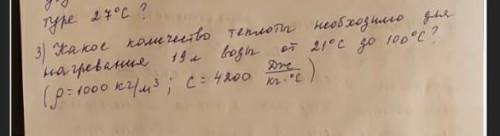 туре 27°С?
3) Какое количество теплоты необходимо для
нагревания 19 л воды от 21°С до 100°С?
(ρ=1000 кг/м³; С=4200 Дж/кг·°С)